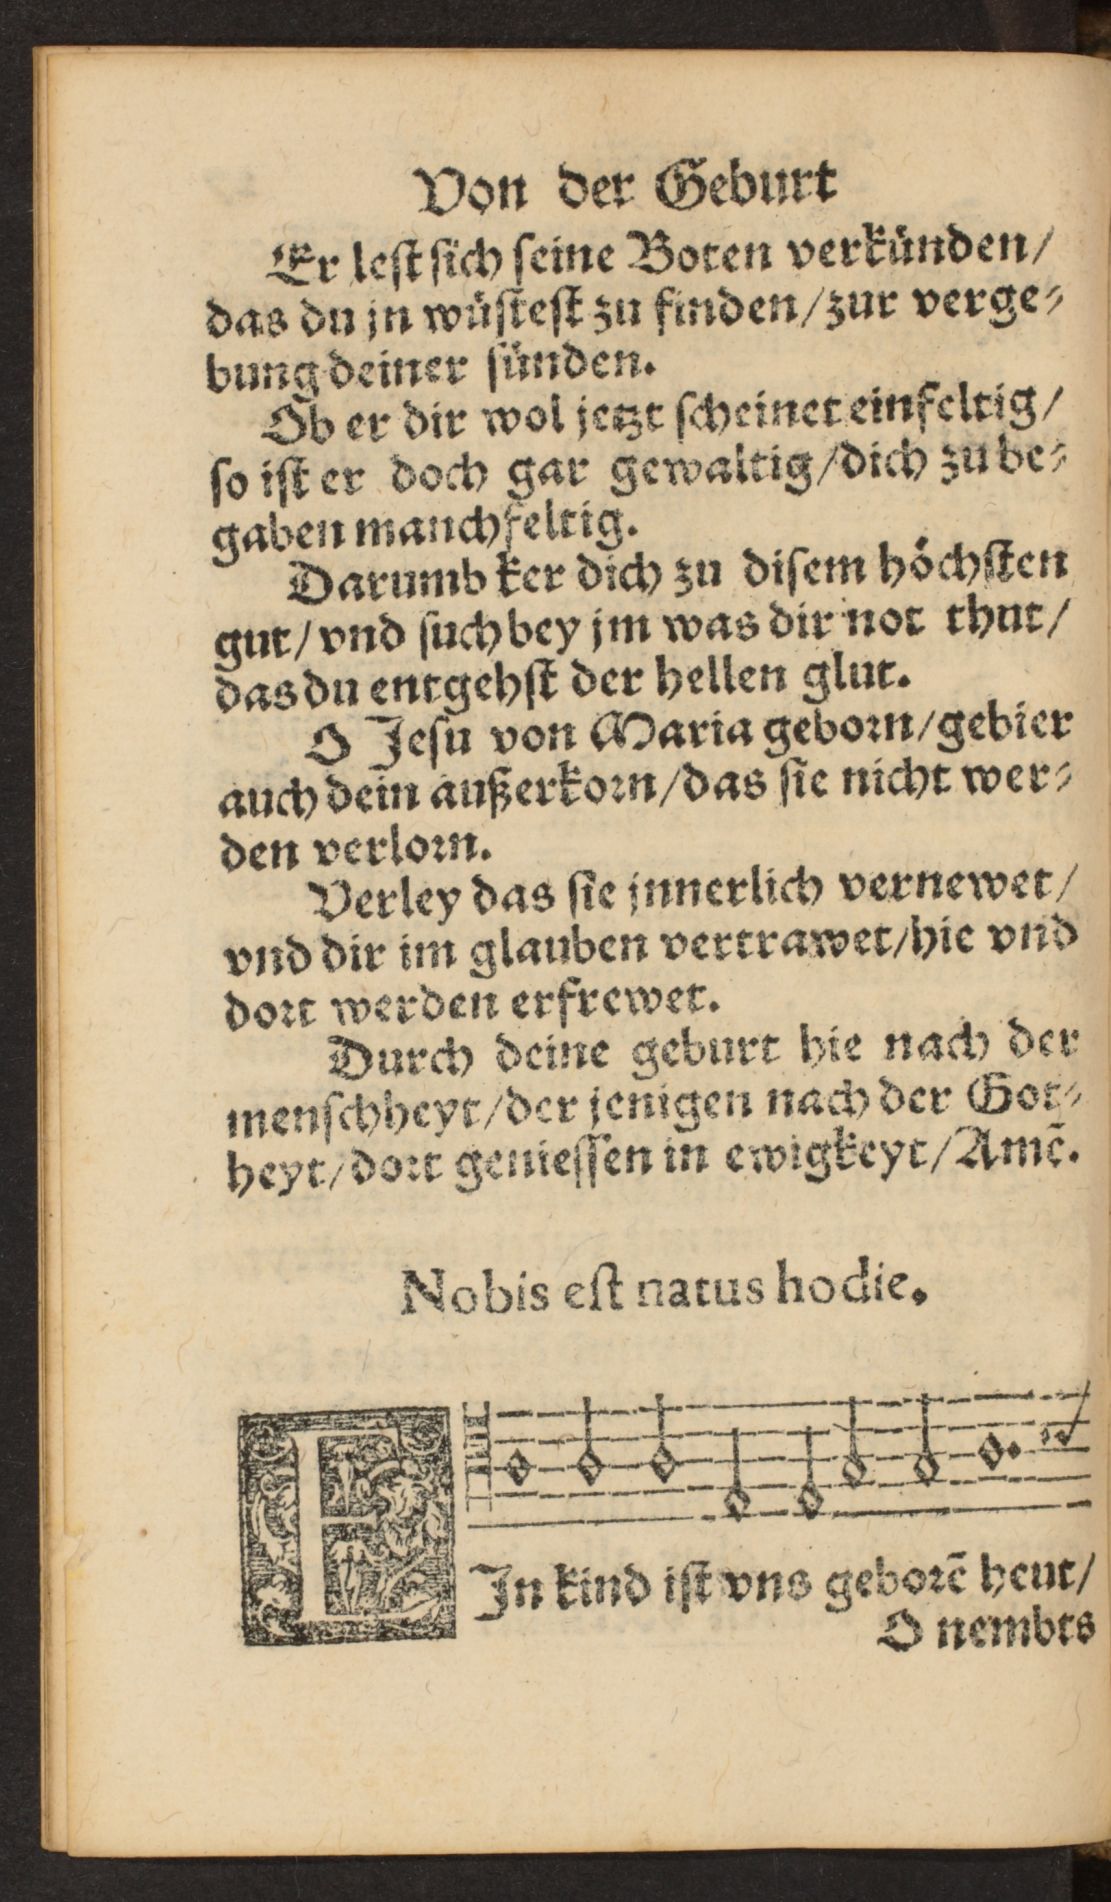 Von der Geburt
Er lest sich seine Boten verkünden/
das du jn wüstest zu finden/zur verge⸗
bung deiner sünden.
Ob er dir wol jetzt scheinet einfeltig/
so ist er doch gar gewaltig/dich zu be⸗
gaben manchfeltig.
Darumb ker dich zu disem höchsten
gut/vnd such bey jm was dir not thut/
das du entgehst der hellen glut.
O Jesu von Maria geborn/gebier
auch dein außerkorn/das sie nicht wer⸗
den verlorn.
Verley das sie jnnerlich vernewet/
vnd dir im glauben vertrawet/hie vnd
dort werden erfrewet.
Durch deine geburt hie nach der
menschheyt/der jenigen nach der Got⸗
heyt/dort geniessen in ewigkeyt/Amẽ.
Nobis est natus hodie.
EIn kind ist vns geborẽ heut/
O nembts